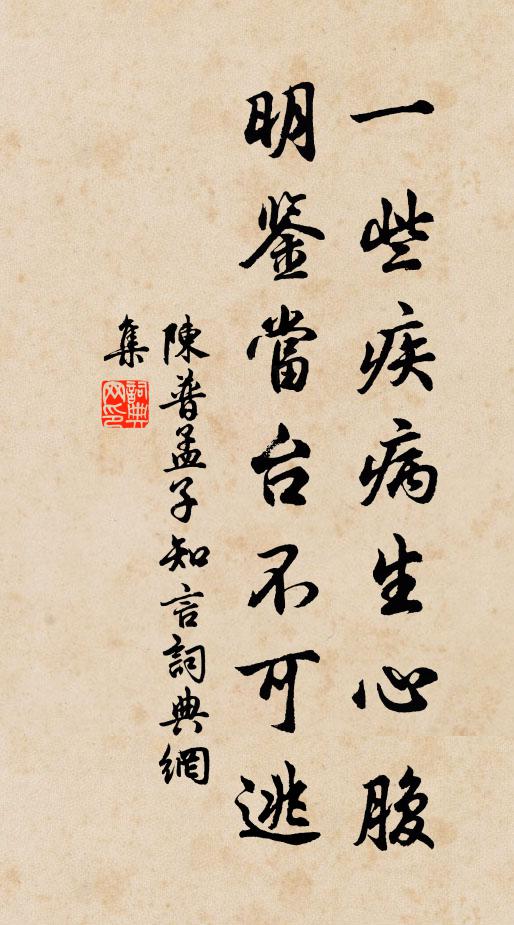 一些疾病生心腹
明鉴當台不可逃
陳普孟子知言詞典網
集
詞典网印